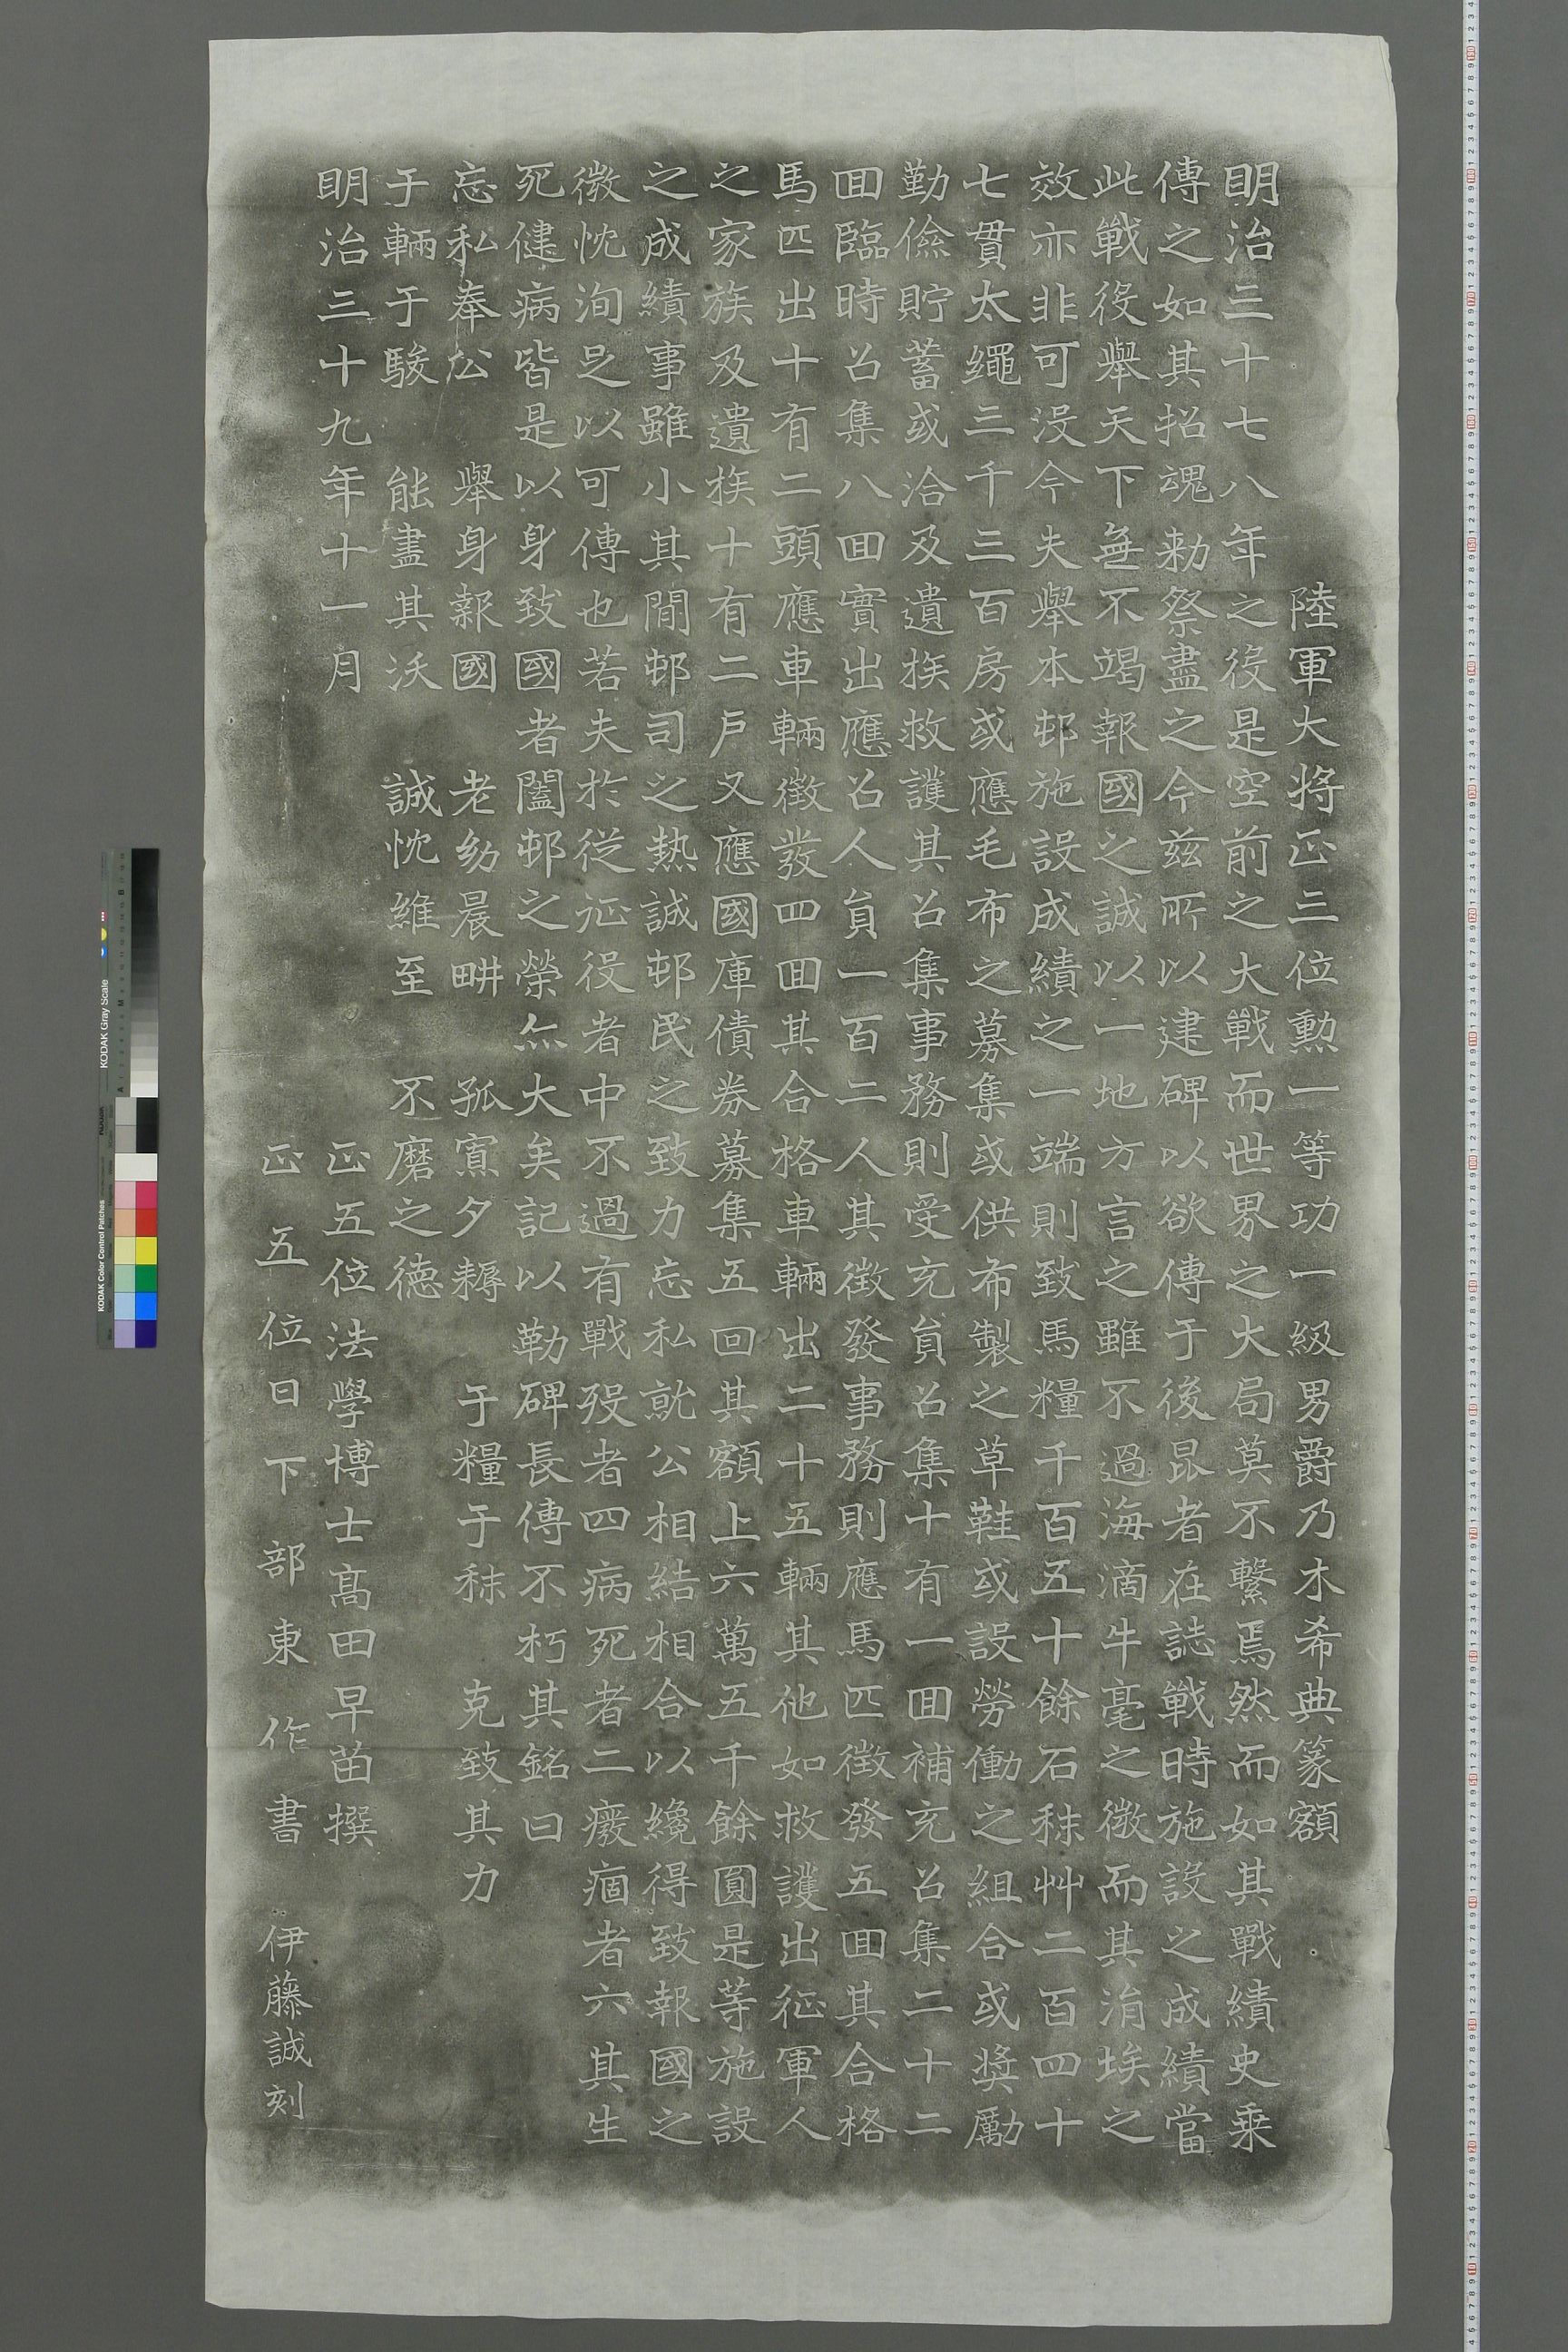 陸軍大将正三位勲一等功一級男爵乃木希典篆額
明治三十七八年之役是空前之大戰而世界之大局莫不繋焉然而如其戰績史乗
傳之如其招魂勅祭盡之今茲所以建碑以欲傳于後昆者在誌戰時施設之成績當
此戰役舉天下無不竭報國之誠以一地方言之雖不過海滴牛毫之微而其涓埃之
效亦非可没今夫舉本邨施設成績之一端則致馬糧千百五十餘石秣艸二百四十
七貫太繩三千三百房或應毛布之募集或供布製之草鞋或設勞働之組合或奨勵
勤儉貯蓄或洽及遺族救護其召集事務則受充員召集十有一回補充召集二十二
回臨時召集八回實出應召人員一百二人其徴發事務則應馬匹徴發五回其合格
馬匹出十有二頭應車輛徴發四回其合格車輛出二十五輛其他如救護出征軍人
之家族及遺族十有二戸又應國庫債券募集五回其額上六萬五千餘圓是等施設
之成績事雖小其間邨司之熱誠邨民之致力忘私就公相結相合以纔得致報國之
微忱洵足以可傳也若夫於從征役者中不過有戰歿者四病死者二癈痼者六其生
死健病皆是以身致國者闔邨之榮無大矣記以勒碑長傳不朽其銘曰
忘私奉公　舉身報國　老幼晨畊　孤寡夕耨　于糧于秣　克致其力
于輛于駿　能盡其沃　誠忱維至　不磨之徳
明治三十九年十一月　正五位法學博士髙田早苗撰
正五位日下部東作書　伊藤誠刻
KODAK Gray Scale
KODAK Color Control Patches